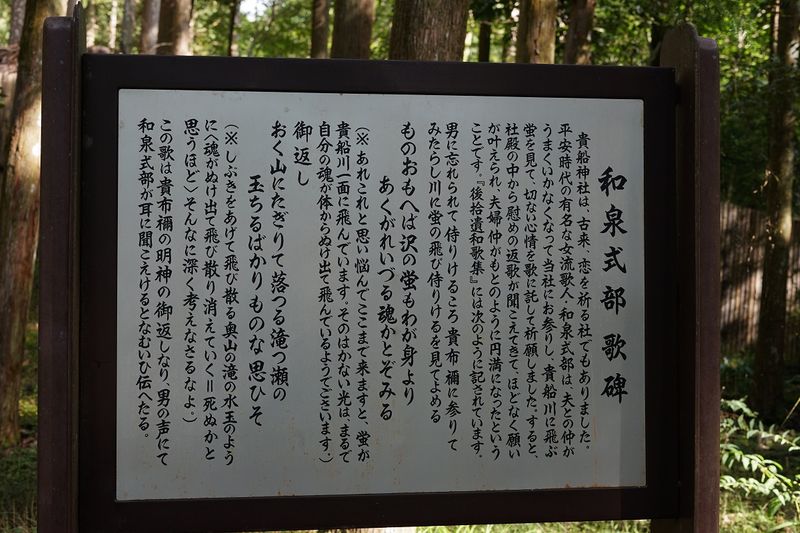 和泉式部 歌碑
貴船神社は、古来、恋を祈る社でもありました。
平安時代の有名な女流歌人・和泉式部は、夫との仲が
うまくいかなくなって当社にお参りし、貴船川に飛ぶ
蛍を見て、切ない心情を歌に託して祈願しました。すると、
社殿の中から慰めの返歌が聞こえてきて、ほどなく願い
が叶えられ、夫婦仲がもとのように円満になったという
ことです。『後拾遺和歌集』には次のように記されています。
男に忘れられて侍りけるころ貴布禰に参りて
みたらし川に蛍の飛び侍りけるを見てよめる
ものおもへば沢の蛍もわが身より
あくがれいづる魂かとぞみる
(※あれこれと思い悩んでここまで来ますと、蛍が
貴船川一面に飛んでいます。そのはかない光は、まるで
自分の魂が体からぬけ出て飛んでいるようでございます。)
御返し
おく山にたぎりて落つる滝つ瀬の
玉ちるばかりものな思ひそ
(※しぶきをあげて飛び散る奥山の滝の水玉のよう
に〈魂がぬけ出て飛び散り消えていく=死ぬかと
思うほど〉そんなに深く考えなさるなよ。)
この歌は貴布禰の明神の御返しなり、男の声にて
和泉式部が耳に聞こえけるとなむいひ伝へたる。